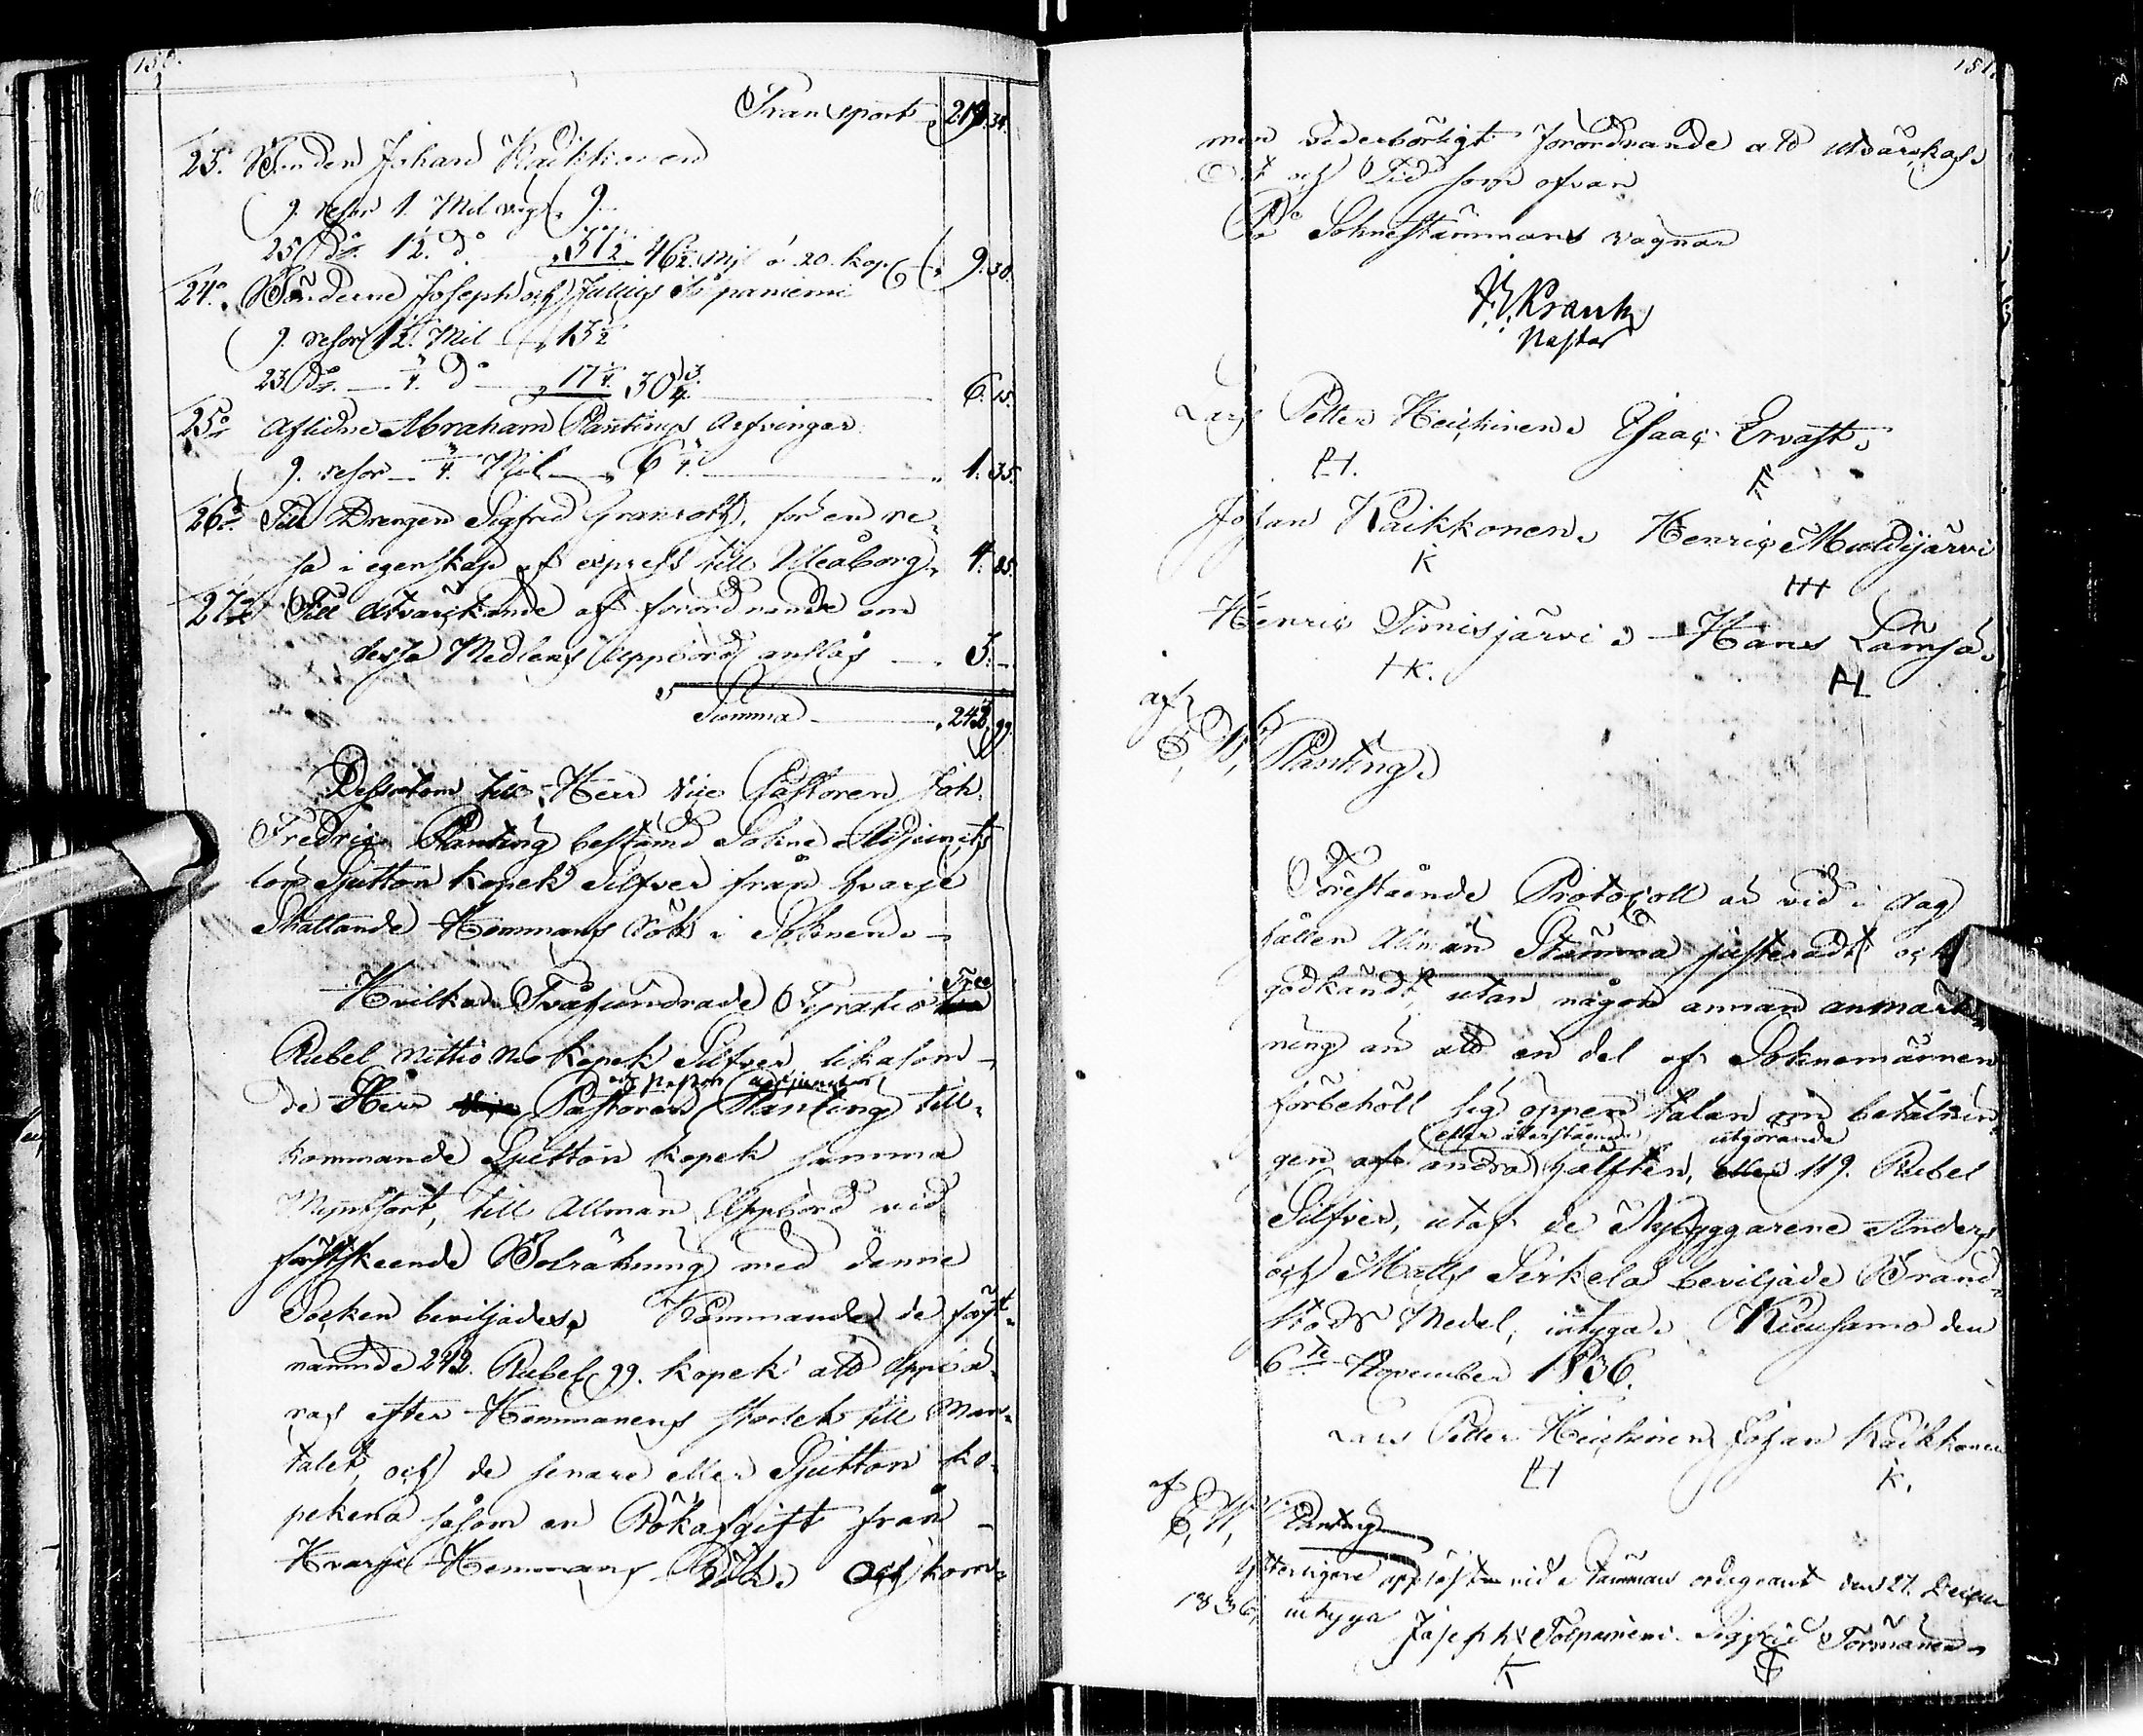 150.
Transport 219.34.
23. Bonden Johan Kaikkonen
9. resor 1. Mil väg 9.
25 Do. 1½. do 37½ 46½ Mil á 20. kop. 9.30.
24o. Bönderne Joseph och Julius
9. resor 1½ Mil 13½
23 Do. ¾. Do 17¼. 30¾. 6.15.
25o Aflidne Abraham Plantings Arfvingar
9. resor ¾. Mil 6¾. 1.35.
26o Till Drengen Sigfrid för en re-
sa i egenskap af express till Uleåborg 4.85.
27o Till utvärkande af förordnande om
dessa Medlens Uppbörd anslås 3.-
Summa 242,99.
Dessutom till Herr Vice Pastoren Joh.
Fredric Planting bestämd Sokne Adjuncts
lön Sjutton kopek Silfver från hvarje
Skattande Hemmans Rök i Soknen.
Hvilka Tvåhundrade Fyratio Två
Rubel nittio nio kopek Silfver likasom
de Herr Pastoren Planting till-
kommande Sjutton kopek samma
Myntsort, till Allmän Uppbörd vid
förstskeende Bolräkning med denne
Socken beviljades. Kommande de först-
nämnde 242. Rubel 99. kopek att uppbä-
ras efter Hemmanens storlek till Man-
talet, och de senare eller Sjutton ko-
pekena såsom en Rökafgift från
Hvarje Hemmans Rök. Och kom-
151.
men vederbörligt förordnande att utvärkas.
Ort och Tid som ofvan
På Soknestämmans vägnar
Krank
Pastor
Lars Petter Heickinen. Esaac Ervast.
PH. E
Johan Kaikkonen. Henric Måldijärvi
K HH
Henric Timisjärvi. Hans Lämsä.
HK. HL
af
E. W. Planting.
Förestående Protocoll är vid i dag
hållen Allmän Stämma justeradt och
godkändt utan någon annan anmärk-
ning än att en del af Soknemännen
förbehöll sig öppen talan om betalnin-
eller återstående utgörande
gen af andra hälften, 119. Rubel
Silfver, utaf de Nybyggarene Anders
och Matts Sirkelä beviljade Brand-
stods Medel, intyga. Kuusamo den
6te November 1836.
Lars Petter Heickinen Johan Kaikkonen
PH K.
af
E. W. Planting
Ytterligare uppläst vid Stämman ordagrant den 27. Decem
1836, intyga
Joseph Sigfrid Törmänen